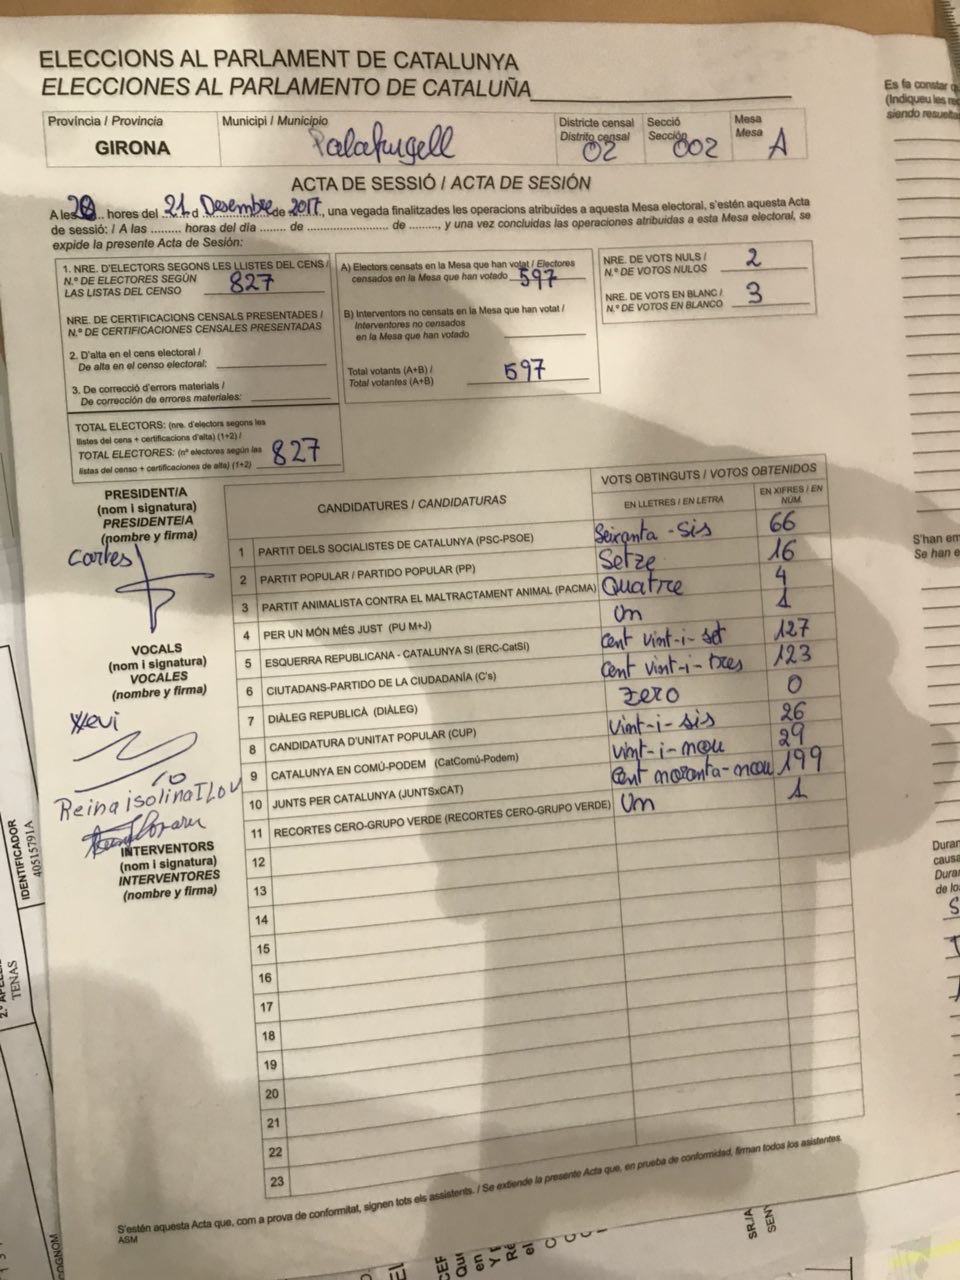 ELECCIONS AL PARLAMENT DE CATALUNYA
ELECCIONES AL PARLAMENTO DE CATALUÑA
Província / Provincia
GIRONA
Municipi / Municipio
Palafrugell
Districte censal
Distrito censal
02
Secció
Sección
002
Mesa
Mesa
A
ACTA DE SESSIÓ / ACTA DE SESIÓN
A les 20 hores del 21 d Desembre de 2017, una vegada finalitzades les operacions atribuïdes a aquesta Mesa electoral, s'estén aquesta Acta
de sessió: / A las ......... horas del día ....... de ..................... de ........, y una vez concluidas las operaciones atribuidas a esta Mesa electoral, se
expide la presente Acta de Sesión:
1. NRE. D'ELECTORS SEGONS LES LLISTES DEL CENS /
N.º DE ELECTORES SEGÚN
LAS LISTAS DEL CENSO 827
NRE. DE CERTIFICACIONS CENSALS PRESENTADES /
N.º DE CERTIFICACIONES CENSALES PRESENTADAS
2. D'alta en el cens electoral /
De alta en el censo electoral:
3. De correcció d'errors materials /
De corrección de errores materiales:
TOTAL ELECTORS: (nre. d'electors segons les
llistes del cens + certificacions d'alta) (1+2) /
TOTAL ELECTORES: (nº electores según las
listas del censo + certificaciones de alta) (1+2) 827
A) Electors censats en la Mesa que han votat / Electores
censados en la Mesa que han votado 597
B) Interventors no censats en la Mesa que han votat /
Interventores no censados
en la Mesa que han votado
Total votants (A+B) /
Total votantes (A+B) 597
NRE. DE VOTS NULS /
N.º DE VOTOS NULOS 2
NRE. DE VOTS EN BLANC /
N.º DE VOTOS EN BLANCO 3
PRESIDENT/A
(nom i signatura)
PRESIDENTE/A
(nombre y firma)
Cartes
VOCALS
(nom i signatura)
VOCALES
(nombre y firma)
Xevi
Reina isolina
INTERVENTORS
(nom i signatura)
INTERVENTORES
(nombre y firma)
CANDIDATURES / CANDIDATURAS
VOTS OBTINGUTS / VOTOS OBTENIDOS
EN LLETRES / EN LETRA
EN XIFRES / EN
NÚM.
1 PARTIT DELS SOCIALISTES DE CATALUNYA (PSC-PSOE) Seixanta-sis 66
2 PARTIT POPULAR / PARTIDO POPULAR (PP) Setze 16
3 PARTIT ANIMALISTA CONTRA EL MALTRACTAMENT ANIMAL (PACMA) Quatre 4
4 PER UN MÓN MÉS JUST (PU M+J) Un 1
5 ESQUERRA REPUBLICANA - CATALUNYA SI (ERC-CatSí) Cent vint-i-set 127
6 CIUTADANS-PARTIDO DE LA CIUDADANÍA (C's) Cent vint-i-tres 123
7 DIÀLEG REPUBLICÀ (DIÀLEG) Zero 0
8 CANDIDATURA D'UNITAT POPULAR (CUP) Vint-i-sis 26
9 CATALUNYA EN COMÚ-PODEM (CatComú-Podem) Vint-i-nou 29
10 JUNTS PER CATALUNYA (JUNTSxCAT) Cent noranta-nou 199
11 RECORTES CERO-GRUPO VERDE (RECORTES CERO-GRUPO VERDE) Un 1
12
13
14
15
16
17
18
19
20
21
22
23
S'estén aquesta Acta que, com a prova de conformitat, signen tots els assistents. / Se extiende la presente Acta que, en prueba de conformidad, firman todos los asistentes.
ASM
Es fa constar
(Indiqueu les
siendo
S'han
Se han
Duran
causa
Duran
de
IDENTIFICADOR
40515791A
TENAS